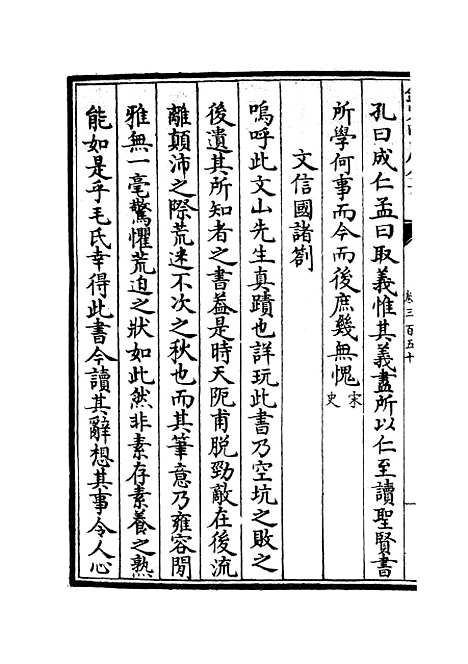 卷三百五十
孔曰成仁孟曰取義惟其義盡所以仁至讀聖賢書
所學何事而今而後庶幾無愧宋史
文信國諸劄
嗚呼此文山先生真蹟也詳玩此書乃空坑之敗之
後遺其所知者之書葢是時天阨甫脫勁敵在後流
離顛沛之際荒迷不次之秋也而其筆意乃雍容閒
雅無一毫驚懼荒迫之狀如此然非素存素養之熟
能如是乎毛氏幸得此書今讀其辭想其事令人心